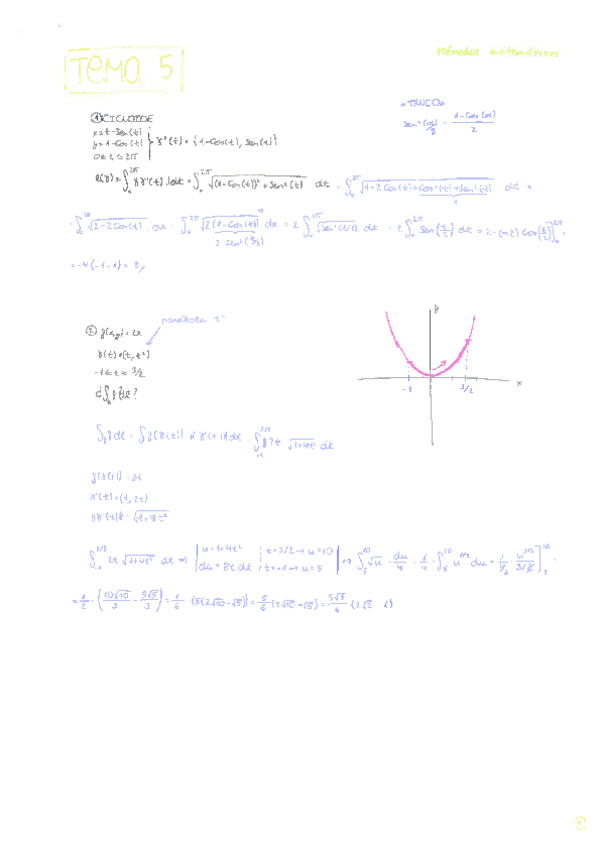 Métodos matemáticos
TEMA 5
① CICLOIDE
x = t - Sen(t)
y = 1 - Cos(t)
0 ≤ t ≤ 2π
γ'(t) = (1 - Cos(t), Sen(t))
"TRUCO"
Sen²(α)/2 = 1 - Cos(α) / 2
l(γ) = ∫₀^2π ||γ'(t)|| dt = ∫₀^2π √(1 - Cos(t))² + Sen²(t) dt = ∫₀^2π √1 - 2Cos(t) + Cos²(t) + Sen²(t) dt =
1
= ∫₀^2π √2 - 2Cos(t) dt = ∫₀^2π √2(1 - Cos(t)) dt = 2 ∫₀^2π √Sen²(t/2) dt = 2 ∫₀^2π Sen(t/2) dt = 2·(-2) Cos(t/2)]₀^2π =
2 Sen²(t/2)
= -4(-1-1) = 8
parábola t²
② f(x,y) = 2x
γ(t) = (t, t²)
-1 ≤ t ≤ 3/2
¿∫ f dl?
y
-1
3/2
x
∫ f dl = ∫ f(γ(t)) ||γ'(t)|| dt = ∫₋₁^3/2 2t √1+4t² dt
f(γ(t)) = 2t
γ'(t) = (1, 2t)
||γ'(t)|| = √1+4t²
∫₋₁^3/2 2t √1+4t² dt ⇒ | u = 1+4t² | t = 3/2 → u = 10 | ⇔ ∫₅^10 √u · du/4 = 1/4 · ∫₅^10 u^1/2 du = 1/4 · u^3/2 / 3/2 ]₅^10 =
du = 8t dt | t = -1 → u = 5
= 1/2 · (10√10/3 - 5√5/3) = 1/6 (5(2√10 - √5)) = 5/6 (2√10 - √5) = 5√5/6 (2√2 - 1)